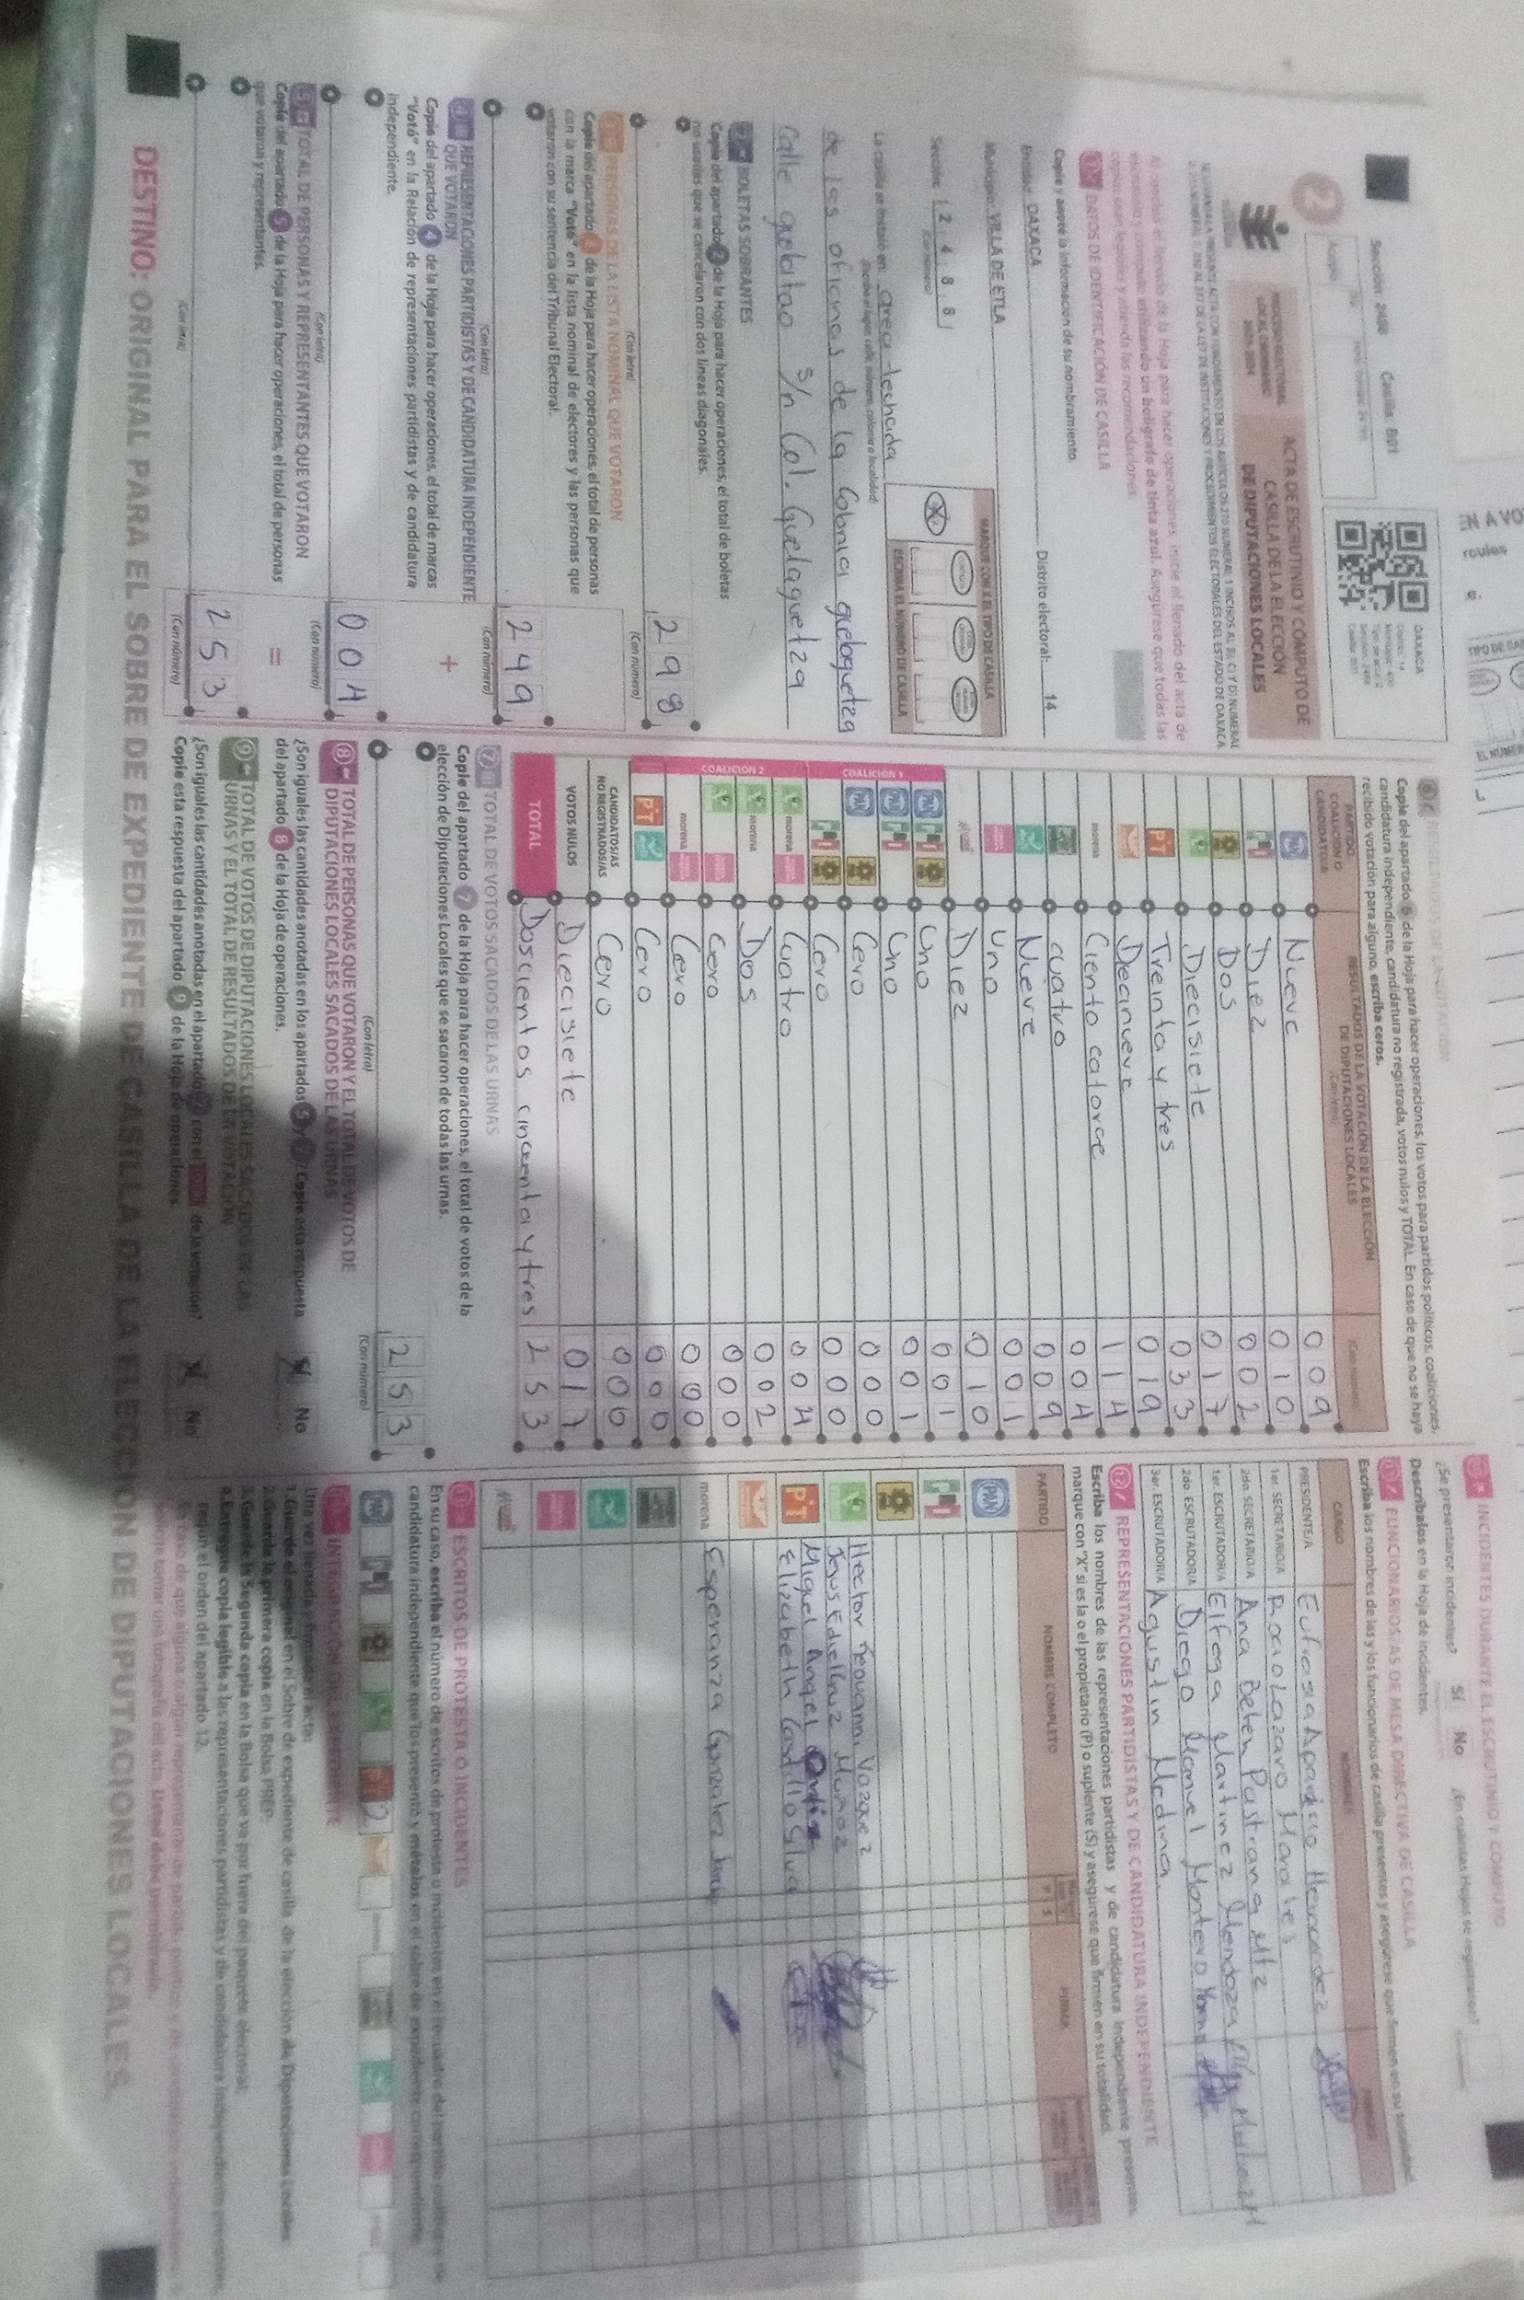 Sección: 2488 Casilla: B01
OAXACA
PROCESO ELECTORAL
LOCAL ORDINARIO
2023-2024
ACTA DE ESCRUTINIO Y CÓMPUTO DE
CASILLA DE LA ELECCIÓN
DE DIPUTACIONES LOCALES
DATOS DE IDENTIFICACIÓN DE CASILLA
Copie y anote la información de su nombramiento.
Entidad: OAXACA Distrito electoral: 14
Municipio: VILLA DE ETLA
Sección: 2 4 8 8
(Con número)
MARQUE CON X EL TIPO DE CASILLA
ESCRIBA EL NÚMERO DE CASILLA
La casilla se instaló en: area techada
de las oficinas de la Colonia guelaguetza
Calle guelatao S/n Col. Guelaguetza
2 BOLETAS SOBRANTES
Copie del apartado 2 de la Hoja para hacer operaciones, el total de boletas
no usadas que se cancelaron con dos líneas diagonales.
298
(Con letra) (Con número)
PERSONAS DE LA LISTA NOMINAL QUE VOTARON
Copie del apartado 3 de la Hoja para hacer operaciones, el total de personas
con la marca "Votó" en la lista nominal de electores y las personas que
votaron con su sentencia del Tribunal Electoral.
249
(Con letra) (Con número)
+
REPRESENTACIONES PARTIDISTAS Y DE CANDIDATURA INDEPENDIENTE
QUE VOTARON
Copie del apartado 4 de la Hoja para hacer operaciones, el total de marcas
"Votó" en la Relación de representaciones partidistas y de candidatura
independiente.
004
(Con letra) (Con número)
=
TOTAL DE PERSONAS Y REPRESENTANTES QUE VOTARON
Copie del apartado 5 de la Hoja para hacer operaciones, el total de personas
que votaron y representantes.
253
(Con letra) (Con número)
Copie del apartado 6 de la Hoja para hacer operaciones, los votos para partidos políticos, coaliciones,
candidatura independiente, candidatura no registrada, votos nulos y TOTAL. En caso de que no se haya
recibido votación para alguno, escriba ceros.
PARTIDO,
COALICIÓN O
CANDIDATO/A
RESULTADOS DE LA VOTACIÓN DE LA ELECCIÓN
DE DIPUTACIONES LOCALES
(Con letra)
PAN Nueve 009
Diez 010
Dos 002
Diecisiete 017
PT Treinta y tres 033
Diecinueve 019
morena Ciento catorce 114
cuatro 004
Nueve 009
Uno 001
Diez 010
COALICIÓN 1
Uno 001
Uno 001
Cero 000
Cero 000
COALICIÓN 2
morena Cuatro 004
morena Dos 002
Cero 000
morena Cero 000
PT Cero 000
CANDIDATOS/AS
NO REGISTRADOS/AS Cero 000
VOTOS NULOS Diecisiete 017
TOTAL Doscientos cincuenta y tres 253
7 TOTAL DE VOTOS SACADOS DE LAS URNAS
Copie del apartado 7 de la Hoja para hacer operaciones, el total de votos de la
elección de Diputaciones Locales que se sacaron de todas las urnas.
253
(Con letra) (Con número)
8 = TOTAL DE PERSONAS QUE VOTARON Y EL TOTAL DE VOTOS DE
DIPUTACIONES LOCALES SACADOS DE LAS URNAS
¿Son iguales las cantidades anotadas en los apartados 5 y 7? Copie esta respuesta
del apartado 8 de la Hoja de operaciones. No
9 = TOTAL DE VOTOS DE DIPUTACIONES LOCALES SACADOS DE LAS
URNAS Y EL TOTAL DE RESULTADOS DE LA VOTACIÓN
¿Son iguales las cantidades anotadas en el apartado 7 con el TOTAL de la votación?
Copie esta respuesta del apartado 9 de la Hoja de operaciones. No
INCIDENTES DURANTE EL ESCRUTINIO Y CÓMPUTO
¿Se presentaron incidentes? Sí No
Descríbalos en la Hoja de incidentes.
FUNCIONARIOS/AS DE MESA DIRECTIVA DE CASILLA
Escriba los nombres de las y los funcionarios de casilla presentes y asegúrese que firmen en su totalidad.
CARGO NOMBRES
PRESIDENTE/A Eufrasia Aparicio Hernandez
1er. SECRETARIO/A Rocio Lazaro Morales
2do. SECRETARIO/A Ana Belen Pastrana Mtz
1er. ESCRUTADOR/A Elfega Martinez Mendoza
2do. ESCRUTADOR/A Diego Manuel Montero
3er. ESCRUTADOR/A Agustin Medina
12 REPRESENTACIONES PARTIDISTAS Y DE CANDIDATURA INDEPENDIENTE
Escriba los nombres de las representaciones partidistas y de candidatura independiente presentes,
marque con "X" si es la o el propietario (P) o suplente (S) y asegúrese que firmen en su totalidad.
PARTIDO NOMBRE COMPLETO FIRMA
PAN
Hector Vazquez
Muñoz
PT Miguel Angel
Elizabeth Castillo Silva
morena Esperanza Gonzalez
ESCRITOS DE PROTESTA O INCIDENTES
En su caso, escriba el número de escritos de protesta o incidentes en el recuadro del partido político o de
candidatura independiente que los presentó y métalos en el sobre de expediente correspondiente.
2
Una vez llenada y firmada el acta:
1. Guarde el original en el Sobre de expediente de casilla de la elección de Diputaciones Locales;
2. Guarde la primera copia en la Bolsa PREP;
3. Guarde la segunda copia en la Bolsa que va por fuera del paquete electoral;
4. Entregue copia legible a las representaciones partidistas y de candidatura independiente presentes,
según el orden del apartado 12.
DESTINO: ORIGINAL PARA EL SOBRE DE EXPEDIENTE DE CASILLA DE LA ELECCIÓN DE DIPUTACIONES LOCALES.